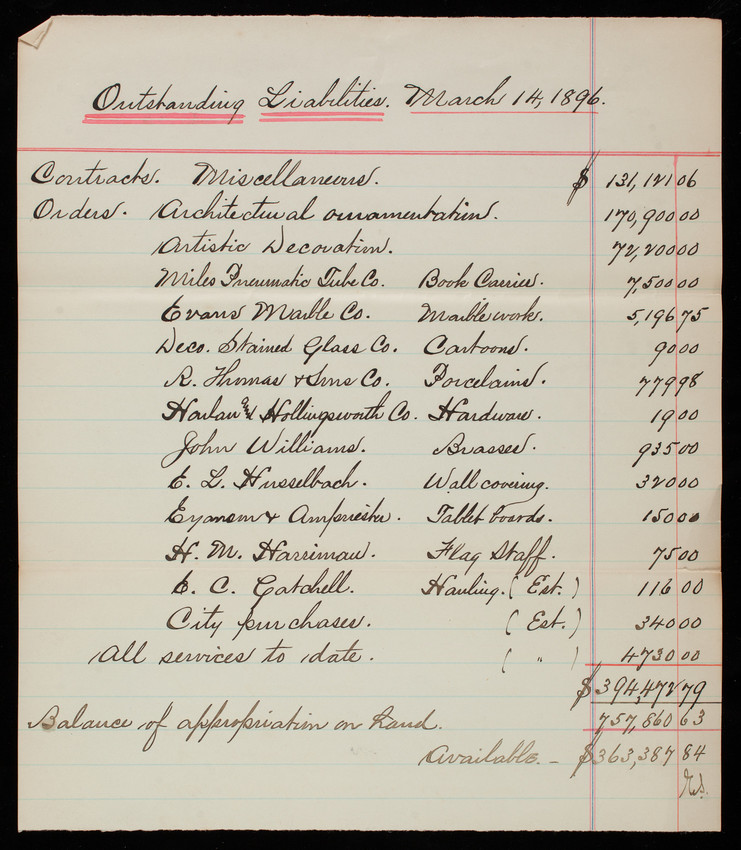 Outstanding Liabilities. March 14, 1896.
Contracts. Miscellaneous. $ 131,121 06
Orders. Architectural ornamentation. 170,900 00
Artistic Decoration. 72,200 00
Miles Pneumatic Tube Co. Book Carrier. 7,500 00
Evans Marble Co. Marble work. 5,196 75
Deco. Stained Glass Co. Cartoons. 90 00
R. Thomas & Sons Co. Porcelains. 779 98
Harlan and Hollingsworth Co. Hardware. 19 00
John Williams. Brasses. 935 00
E. L. Husselbach. Wall covering. 320 00
Eynon & Tablet boards. 150 00
H. M. Harriman. Flag Staff. 75 00
E. C. Gatchell. Hauling. (Est.) 116 00
City purchases. (Est.) 340 00
All services to date. ( " ) 4730 00
$ 394,472 79
Balance of appropriation on hand. 757,860 63
Available. – $ 363,387 84